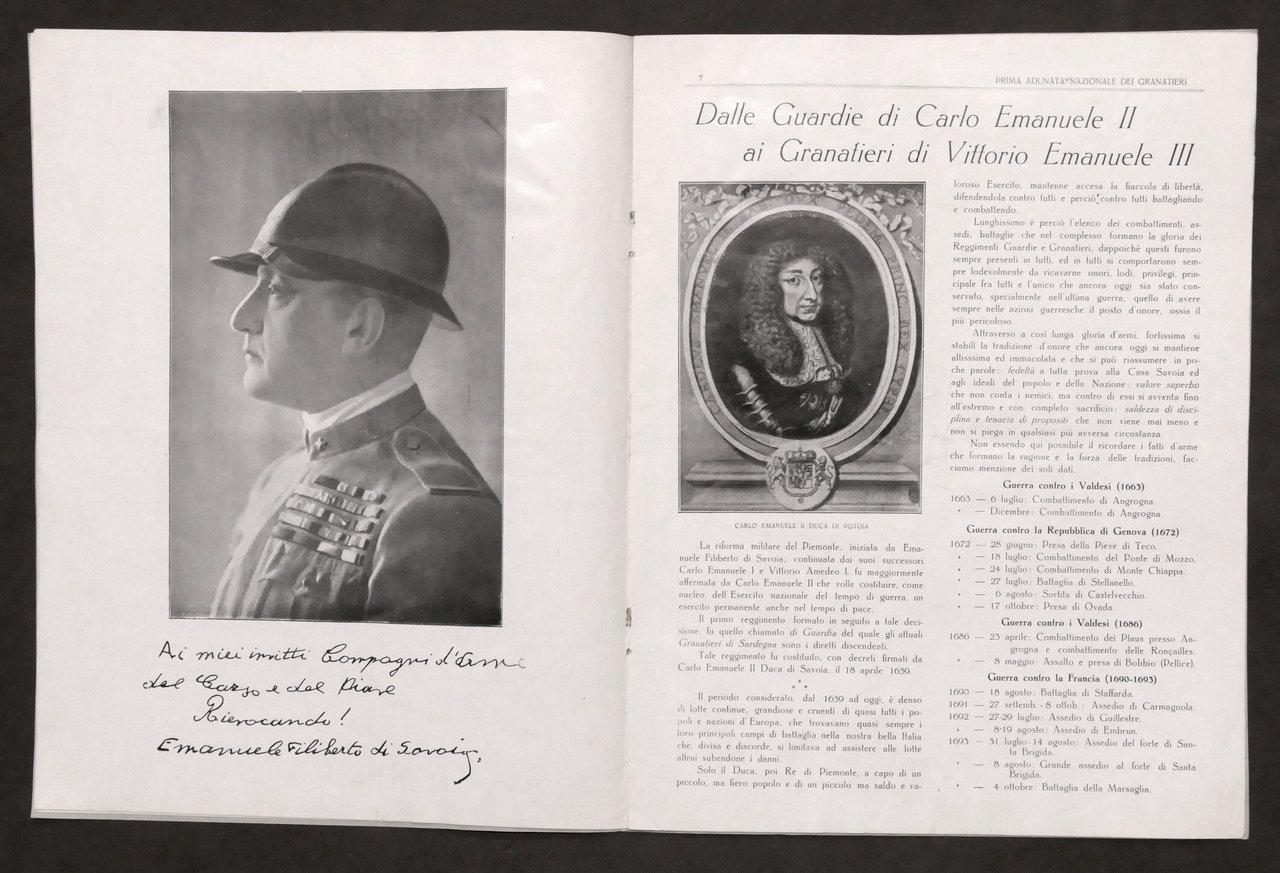 Ai miei invitti Compagni d'Arme
del Carso e del Piave
Rievocando!
Emanuele Filiberto di Savoia,
7
PRIMA ADUNATA NAZIONALE DEI GRANATIERI
Dalle Guardie di Carlo Emanuele II
ai Granatieri di Vittorio Emanuele III
CARLO EMANUELE II DUCA DI PISTOIA
La riforma militare del Piemonte, iniziata da Ema-
nuele Filiberto di Savoia, continuata dai suoi successori
Carlo Emanuele I e Vittorio Amedeo I, fu maggiormente
affermata da Carlo Emanuele II che volle costituire, come
nucleo dell'Esercito nazionale del tempo di guerra, un
esercito permanente anche nel tempo di pace.
Il primo reggimento formato in seguito a tale deci-
sione, fu quello chiamato di Guardia del quale gli attuali
Granatieri di Sardegna sono i diretti discendenti.
Tale reggimento fu costituito, con decreti firmati da
Carlo Emanuele II Duca di Savoia, il 18 aprile 1659.
* * *
Il periodo considerato, dal 1659 ad oggi, è denso
di lotte continue, grandiose e cruenti di quasi tutti i po-
poli e nazioni d'Europa, che trovavano quasi sempre i
loro principali campi di battaglia nella nostra bella Italia
che, divisa e discorde, si limitava ad assistere alle lotte
altrui subendone i danni.
Solo il Duca, poi Re di Piemonte, a capo di un
piccolo, ma fiero popolo e di un piccolo ma saldo e va-
loroso Esercito, mantenne accesa la fiaccola di libertà,
difendendola contro tutti e perciò contro tutti battagliando
e combattendo.
Lunghissimo è perciò l'elenco dei combattimenti, as-
sedi, battaglie che nel complesso formano la gloria dei
Reggimenti Guardie e Granatieri, dappoichè questi furono
sempre presenti in tutti, ed in tutti si comportarono sem-
pre lodevolmente da ricavarne onori, lodi, privilegi, prin-
cipale fra tutti e l'unico che ancora oggi sia stato con-
servato, specialmente nell'ultima guerra, quello di avere
sempre nelle azioni guerresche il posto d'onore, ossia il
più pericoloso.
Attraverso a così lunga gloria d'armi, fortissima si
stabilì la tradizione d'onore che ancora oggi si mantiene
altissima ed immacolata e che si può riassumere in po-
che parole: fedeltà a tutta prova alla Casa Savoia ed
agli ideali del popolo e della Nazione: valore superbo
che non conta i nemici, ma contro di essi si avventa fino
all'estremo e con completo sacrificio: saldezza di disci-
plina e tenacia di propositi che non viene mai meno e
non si piega in qualsiasi più avversa circostanza.
Non essendo qui possibile il ricordare i fatti d'arme
che formano la ragione e la forza delle tradizioni, fac-
ciamo menzione dei soli dati.
Guerra contro i Valdesi (1663)
1663 — 6 luglio: Combattimento di Angrogna.
" — Dicembre: Combattimento di Angrogna.
Guerra contro la Repubblica di Genova (1672)
1672 — 28 giugno: Presa della Pieve di Teco.
" — 18 luglio: Combattimento del Ponte di Mozzo.
" — 24 luglio: Combattimento di Monte Chiappa.
" — 27 luglio: Battaglia di Stellanello.
" — 6 agosto: Sortita di Castelvecchio.
" — 17 ottobre: Presa di Ovada.
Guerra contro i Valdesi (1686)
1686 — 23 aprile: Combattimento dei Plaus presso An-
grogna e combattimento delle Ronçailles.
" — 8 maggio: Assalto e presa di Bobbio (Pellice).
Guerra contro la Francia (1690-1693)
1690 — 18 agosto: Battaglia di Staffarda.
1691 — 27 settemb.-8 ottob.: Assedio di Carmagnola.
1692 — 27-29 luglio: Assedio di Guillestre.
" — 8-19 agosto: Assedio di Embrun.
1693 — 31 luglio-14 agosto: Assedio del forte di San-
ta Brigida.
" — 8 agosto: Grande assedio al forte di Santa
Brigida.
" — 4 ottobre: Battaglia della Marsaglia.